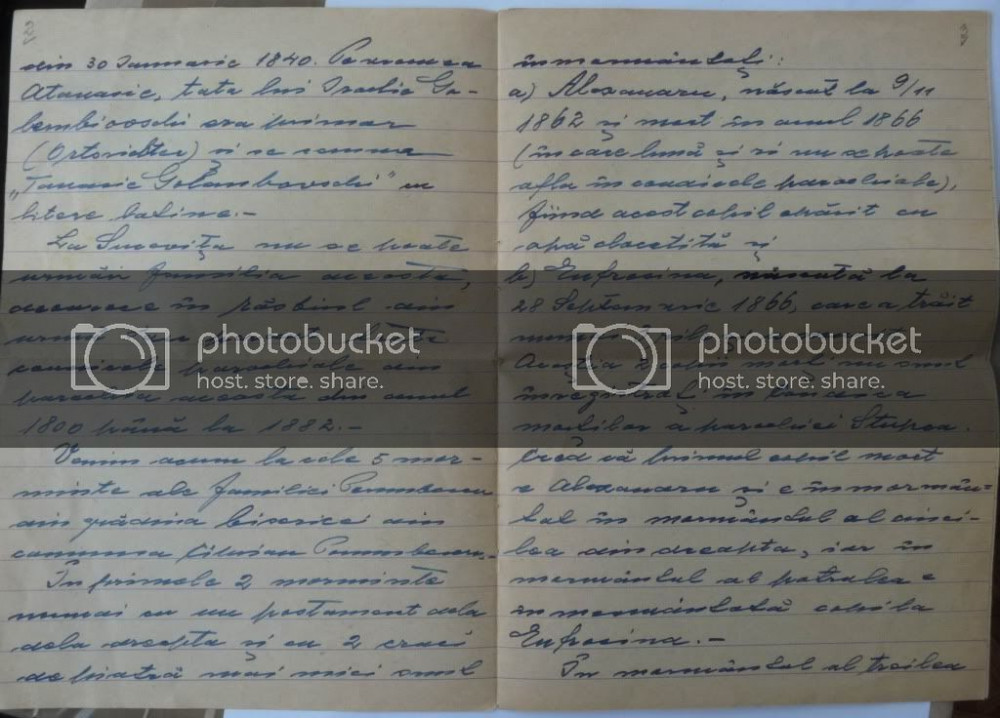 din 30 Ianuarie 1840. Pe vremea
Atanasie, tata lui Iraclie Go-
lembiovschi era primar
(Ortsrichter) și se semna
"Tanasie Golembovschi" cu
litere latine.-
La Sucevița nu se poate
urmări familia aceasta,
deoarece în răsboiul din
urmă au
condicile parochiale din
parochia aceasta din anul
1800 până la 1882.-
Venim acum la cele 5 mor-
minte ale familiei Porumbescu
din grădina bisericei din
comuna Ciprian Porumbescu.-
În primele 2 morminte
numai cu un postament dela
dela dreapta și cu 2 cruci
de piatră mai mici sunt
3
înmormântați:
a) Alexandru, născut la 9/11
1862 și mort în anul 1866
(în care lună și zi nu se poate
afla în condicele parochiale),
fiind acest copil opărit cu
apă clocotită și
b) Eufrosina, născută la
28 Septemvrie 1866, care a trăit
numai
Aceștia 2 copii morți nu sunt
înregistrați în condica
morților a parochiei Stupca.
Cred că primul copil mort
e Alexandru și e înmormân-
tat în mormântul al cinci-
lea din dreapta, iar în
mormântul al patrulea e
înmormântată copila
Eufrosina.-
În mormântul al treilea
photobucket
host. store. share.
photobucket
host. store. share.